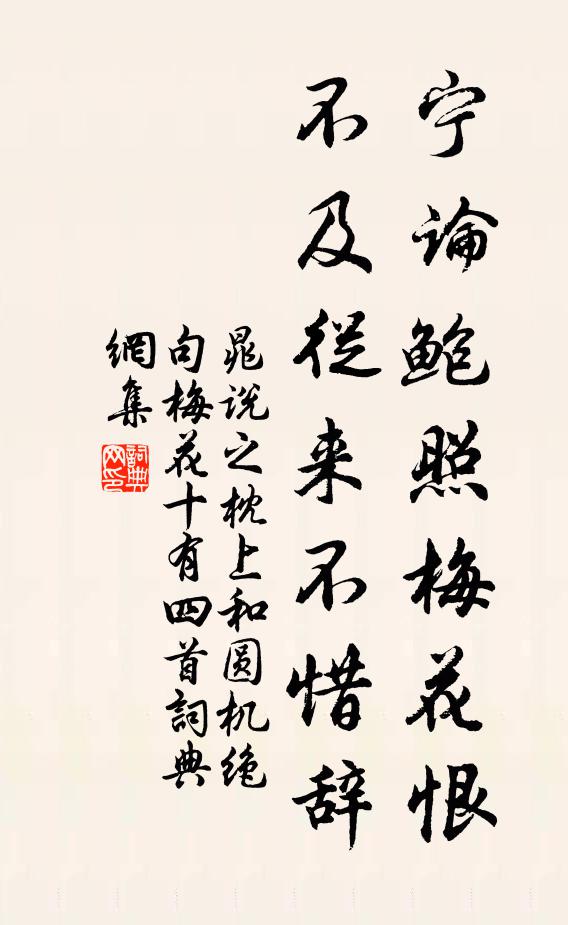 宁論鲍照梅花恨
不及從来不惜辞
晁说之枕上和圆机绝
句梅花十有四首詞典
網集
詞典
网印